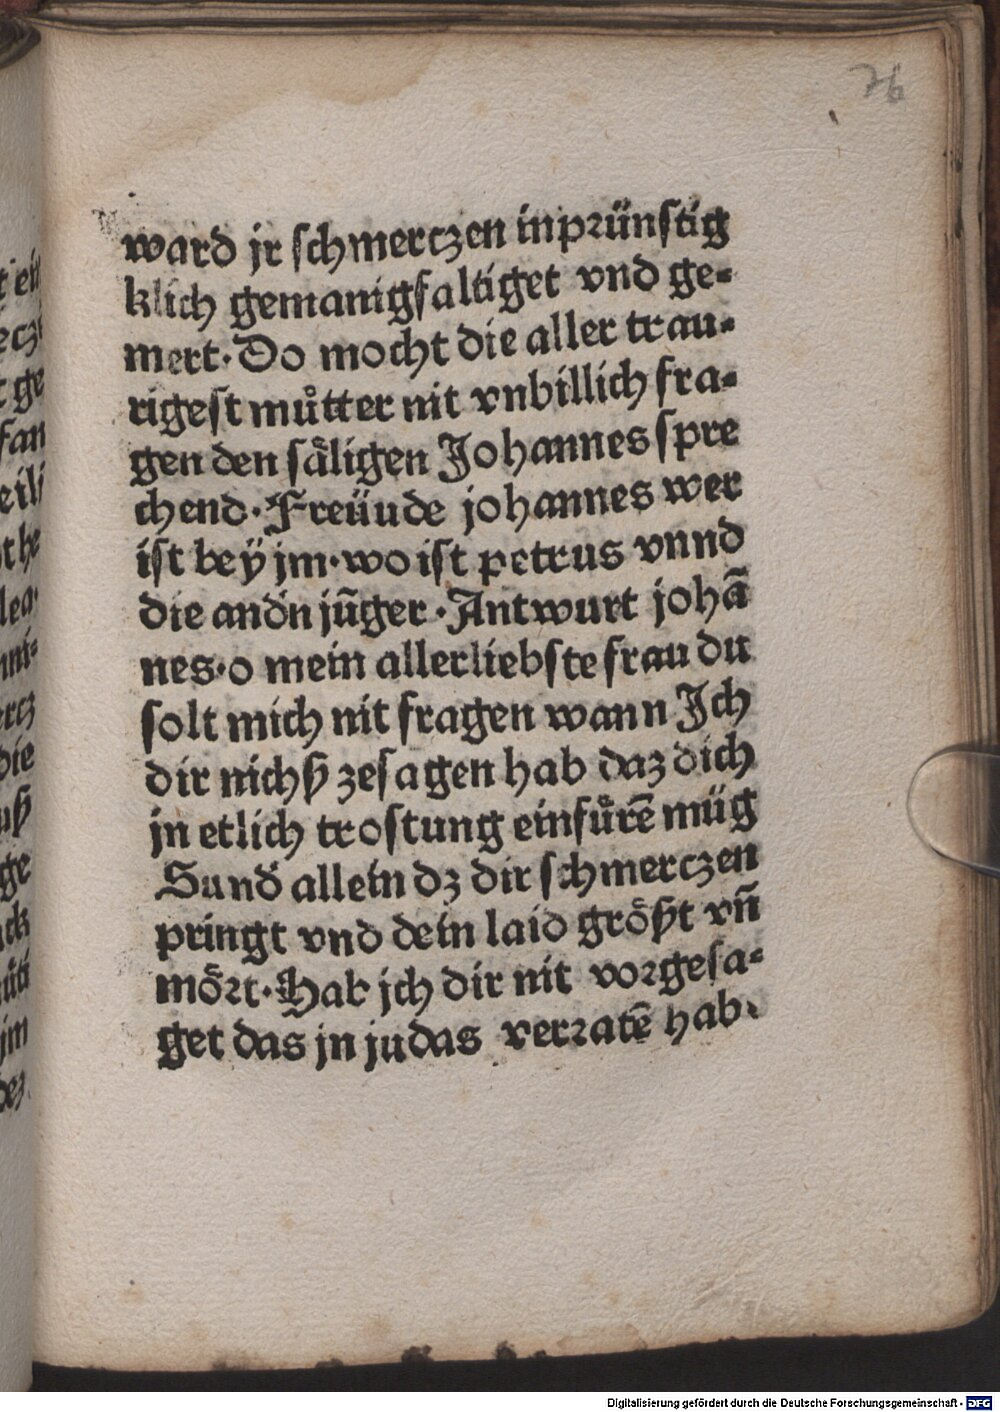 76
ward jr schmerczen inprünstig
klich gemanigfaltiget vnd ge-
mert. Do mocht die aller trau-
rigest můtter nit vnbillich fra-
gen den såligen Johannes spre
chend. Freüude johannes wer
ist beÿ jm. wo ist petrus vnnd
die andn̄ jūger. Antwurt johā
nes. o mein allerliebste frau du
solt mich nit fragen wann Jch
dir nichß zesagen hab daz dich
jn etlich trostung einfůrē müg
Sund̄ allein dz dir schmerczen
pringt vnd dein laid größt vn̄
mört. Hab jch dir nit vorgesa-
get das jn judas verratē hab.
Digitalisierung gefördert durch die Deutsche Forschungsgemeinschaft - DFG